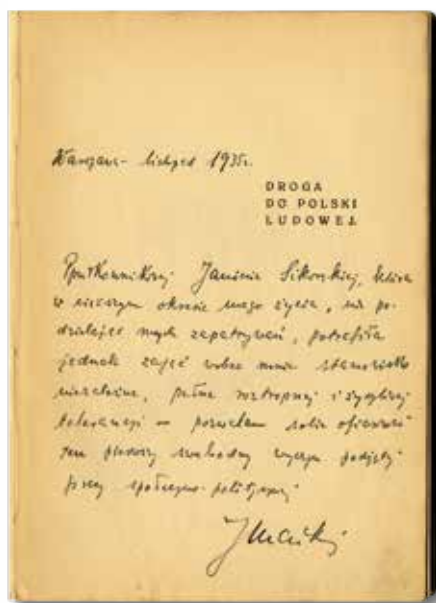 Warszawa - listopad 1935r.
DROGA
DO POLSKI
LUDOWEJ
Ppułkownikowej Janinie Sikorskiej, która
w ciężkim okresie mego życia, nie po-
dzielając mych zapatrywań, potrafiła
jednak zająć wobec mnie stanowisko
niezależne, pełne roztropnej i życzliwej
tolerancji - pozwalam sobie ofiarować
ten pierwszy swobodny
pracy społeczno-politycznej